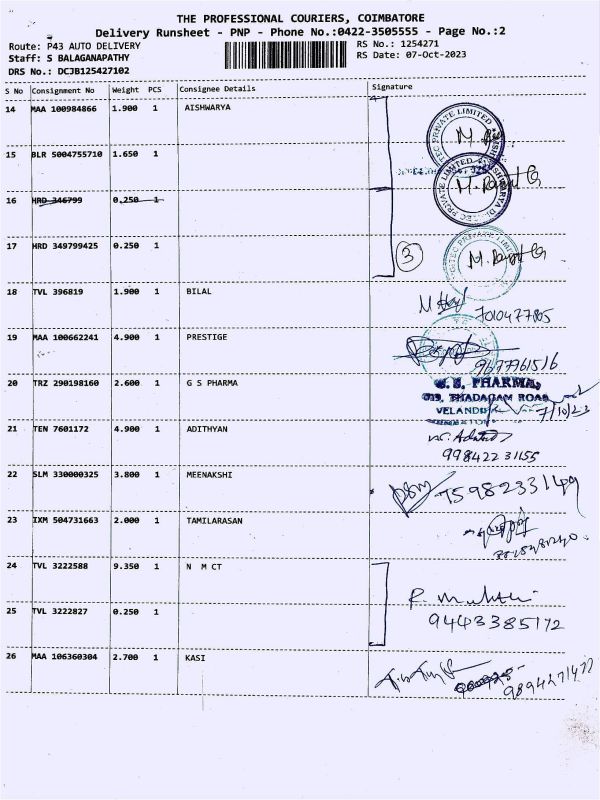 THE PROFESSIONAL COURIERS, COIMBATORE
Delivery Runsheet - PNP - Phone No.:0422-3505555 - Page No.:2
Route: P43 AUTO DELIVERY RS No.: 1254271
Staff: S BALAGANAPATHY RS Date: 07-Oct-2023
DRS No.: DCJB125427102
S No Consignment No Weight PCS Consignee Details Signature
14 MAA 100984866 1.900 1 AISHWARYA
15 BLR 5004755710 1.650 1
16 HRD 346799 0.250 1
17 HRD 349799425 0.250 1 3
18 TVL 396819 1.900 1 BILAL
7010477805
19 MAA 100662241 4.900 1 PRESTIGE
9677961516
20 TRZ 290198160 2.600 1 G S PHARMA G.S. PHARMA,
THADAGAM ROAD
7/10/23
21 TEN 7601172 4.900 1 ADITHYAN
9984223 1155
22 SLM 330000325 3.800 1 MEENAKSHI 7598233149
23 IXM 504731663 2.000 1 TAMILARASAN
24 TVL 3222588 9.350 1 N M CT
25 TVL 3222827 0.250 1 9443385172
26 MAA 106360304 2.700 1 KASI
9894271477